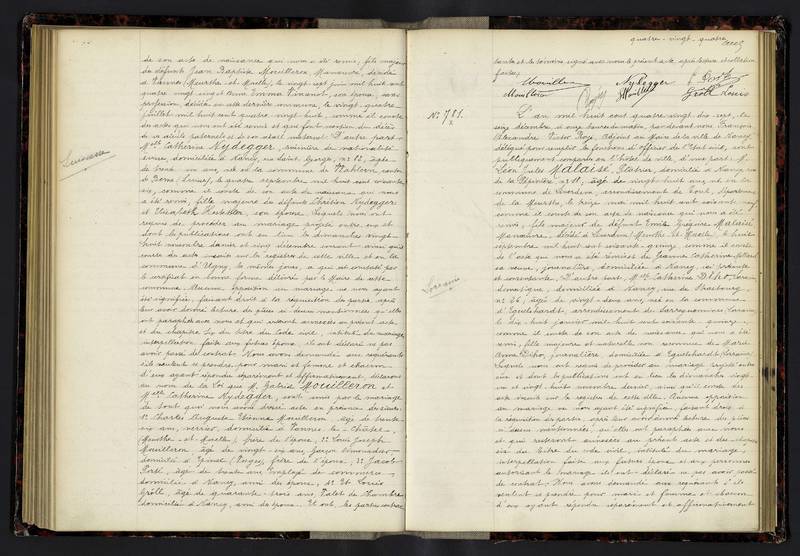 de son acte de naissance qui nous a été remis, fils majeur
de défunt Jean Baptiste Mouilleron, Manœuvre, décédé
à Vannes (Meurthe et Moselle), le vingt sept juin mil huit cent
quatre vingt et Anne Emma son épouse, sans
profession, décédée en cette dernière commune, le vingt quatre
juillet mil huit cent quatre vingt huit, comme il conste
des actes qui nous ont été remis et que font mention du décès
D'autre part
Suissesse
Mlle Catherine Nydegger, cuisinière de nationalité
suisse, domiciliée à Nancy, rue Saint Georges, n° 82, âgée
de trente un ans, née en la commune de Wahlern, canton
de Berne (Suisse), le quatre septembre mil huit cent soixante
six, comme il conste de son acte de naissance qui nous
a été remis, fille majeure des défunts Christian Nydegger
et Elisabeth Hostettler, son épouse. Lesquels nous ont
requis de procéder au mariage projeté entre eux et
dont les publications ont eu lieu les dimanches vingt
huit novembre dernier et cinq décembre courant ainsi qu'il
conste des actes inscrits sur les registres de cette ville et en la
commune d' les mêmes jours, a qui est constaté par
le certificat en bonne forme délivré par le Maire de cette
commune. Aucune opposition au mariage ne nous ayant
été signifiée, faisant droit à la réquisition des parties, après
leur avoir donné lecture des pièces ci-dessus mentionnées, qu'elles
ont paraphées avec nous et qui resteront annexées au présent acte
et du chapitre six du titre du Code civil, intitulé du mariage,
interpellation faite aux futurs époux, ils ont déclaré ne pas
avoir passé de contrat. Nous avons demandé aux requérants
s'ils veulent se prendre pour mari et femme et chacun
d'eux ayant répondu séparément et affirmativement, déclarons
au nom de la loi que M. Gabriel Mouilleron et
Mlle Catherine Nydegger, sont unis par le mariage
De tout quoi nous avons dressé acte en présence des sieurs:
1° Charles Auguste Etienne Mouilleron, âgé de trente
six ans, verrier, domicilié à Vannes-le-Châtel,
(Meurthe-et-Moselle), frère de l'époux, 2° Louis Joseph
Mouilleron âgé de vingt six ans, garçon limonadier
domicilié à Epinal (Vosges), frère de l'époux, 3° Jacob
Porté, âgé de trente ans, Employé de commerce,
domicilié à Nancy, ami des époux, 4° Et Louis
Gröll, âgé de quarante-trois ans, Valet de Chambre
domicilié à Nancy, ami des époux. Et ont, les parties contrac
quatre-vingt-quatre
tantes et les témoins signé avec nous le présent acte, après lecture et collation
faites.
Mouilleron Nydegger
Mouilleron Mouilleron Gröll Louis
N° 781.
L'an mil huit cent quatre vingt dix sept, le
seize décembre, à onze heures du matin, par devant nous François
Alexandre Victor Adjoint au Maire de la ville de Nancy,
délégué pour remplir les fonctions d'officier de l'Etat civil, sont
publiquement comparus en l'hôtel de ville, d'une part M.
Léon Jules Malaisé, domicilié à Nancy, rue
de la Pépinière, n° 11, âgé de vingt-huit ans, né en la
commune de arrondissement de Toul, département
de la Meurthe, le treize mai mil huit cent soixante neuf,
comme il conste de son acte de naissance qui nous a été
remis, fils majeur de défunt Malaisé
Manœuvre, décédé à (Meurthe et Moselle), le huit
septembre mil huit cent soixante-quinze, comme il conste
de l'acte qui nous a été remis et de Jeanne Catherine
sa veuve, journalière, domiciliée à Nancy, ici présente
Lorraine
et consentante. D'autre part, Mlle Catherine Diho, Lorraine
domestique, domiciliée à Nancy, rue de Strasbourg
n° 26, âgée de vingt-deux ans, née en la commune
d'Eguelshardt, arrondissement de Sarreguemines, Lorraine
le dix huit janvier mil huit cent soixante quinze,
comme il conste de son acte de naissance qui nous a été
remis, fille majeure et naturelle non reconnue de Marie
Anne Diho, journalière, domiciliée à Eguelshardt (Lorraine)
Lesquels nous ont requis de procéder au mariage projeté entre
eux et dont les publications ont eu lieu les dimanches vingt
un et vingt huit novembre dernier, ainsi qu'il conste des
actes inscrits sur les registres de cette ville. Aucune opposition
au mariage ne nous ayant été signifiée, faisant droit à
la réquisition des parties, après leur avoir donné lecture des pièces
ci-dessus mentionnées, qu'elles ont paraphées avec nous
et qui resteront annexées au présent acte et du chapitre
six du titre du code civil, intitulé du mariage,
interpellation faite aux futurs époux et aux personnes
autorisant le mariage ils ont déclaré ne pas avoir passé
de contrat. Nous avons demandé aux requérants s'ils
veulent se prendre pour mari et femme et chacun
d'eux ayant répondu séparément et affirmativement